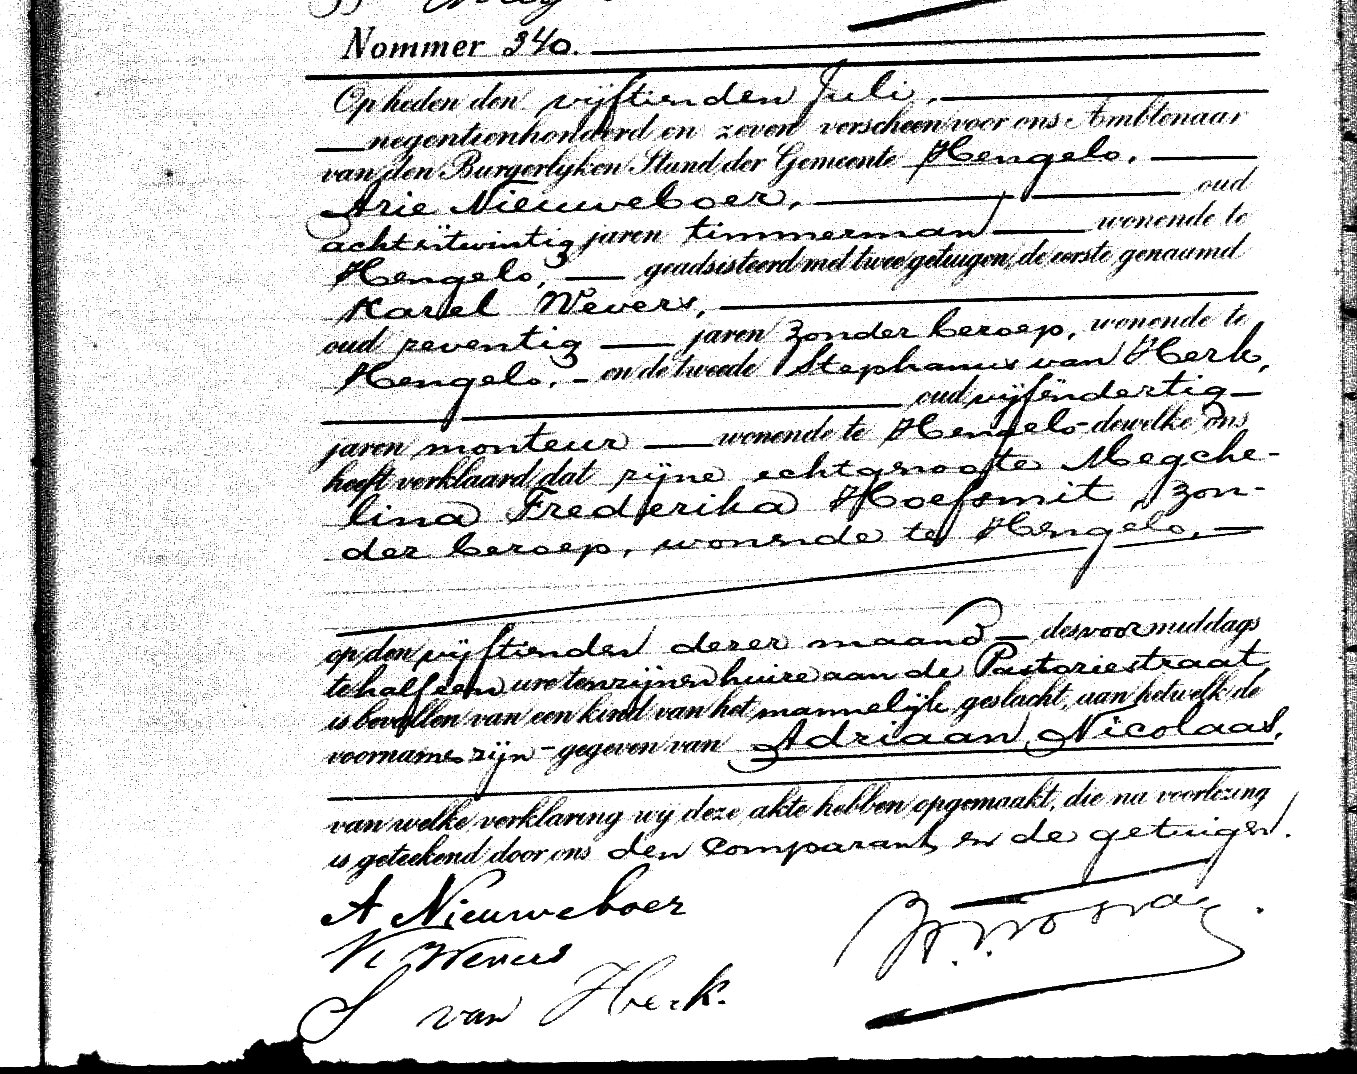 Nommer 340.
Op heden den vijftienden Juli,
negentienhonderd en zeven verscheen voor ons Ambtenaar
van den Burgerlyken Stand der Gemeente Hengelo,
Arie Nieuweboer, oud
achtentwintig jaren timmerman wonende te
Hengelo, geadsisteerd met twee getuigen, de eerste genaamd
Karel Wevers,
oud zeventig jaren zonder beroep, wonende te
Hengelo, en de tweede Stephanus van Herk,
oud vijfendertig
jaren monteur wonende te Hengelo dewelke ons
heeft verklaard dat zijne echtgenoote Megche-
lina Frederika Hoefsmit, zon-
der beroep, wonende te Hengelo,
op den vijftienden dezer maand des voormiddags
te half een ure ten zijnen huize aan de Pastoriestraat
is bevallen van een kind van het mannelijk geslacht, aan hetwelk de
voornamen zijn gegeven van Adriaan Nicolaas,
van welke verklaring wy deze akte hebben opgemaakt, die na voorlezing
is geteekend door ons den comparant en de getuigen.
A Nieuweboer
K Wevers
S van Herk.